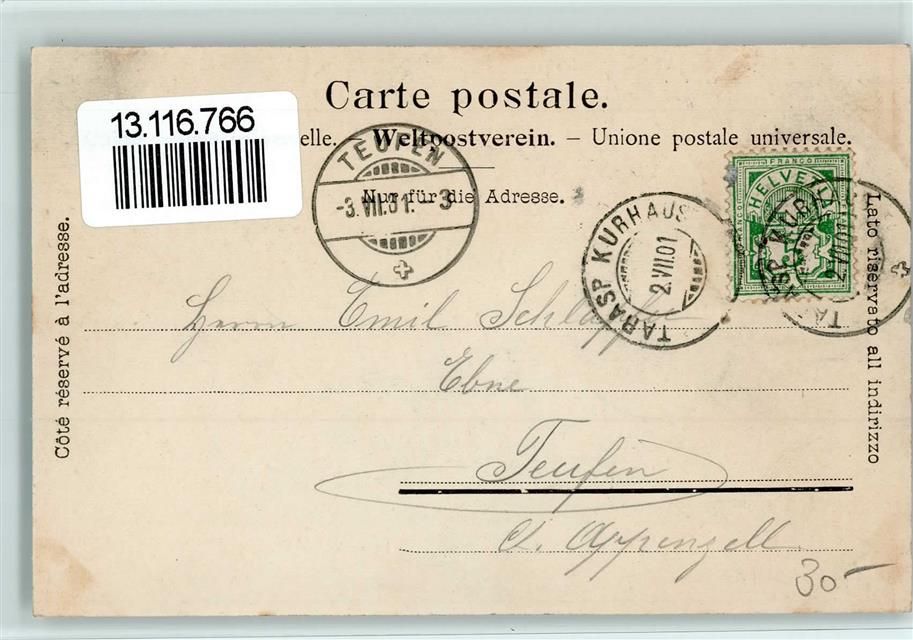 Carte postale.
13.116.766
elle. – Weltpostverein. – Unione postale universale.
Nur für die Adresse.
TEUFEN
-3.VII.01. 3
TARASP KURHAUS
2.VII.01
FRANCO
HELVETIA
FRANCO
TARASP KURHAUS
VII
Côté réservé à l'adresse.
Lato riservato all indirizzo
Herrn Emil Schläpfer
Ebne
Teufen
Ct. Appenzell
30-